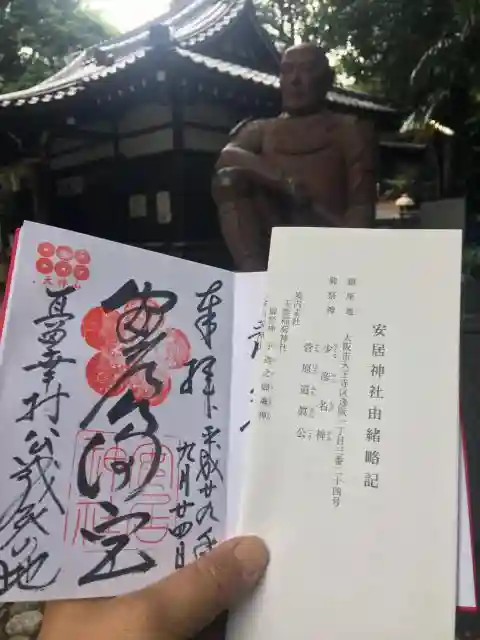 安居神社由緒略記
鎮座地 大阪市天王寺区逢阪一丁目三番二十四号
御祭神 少彦名神
菅原道真公
境内末社
玉姫稲荷神社
奉拝
平成廿九年
九月廿四日
安居神社
天神山
真田幸村公戦死の地